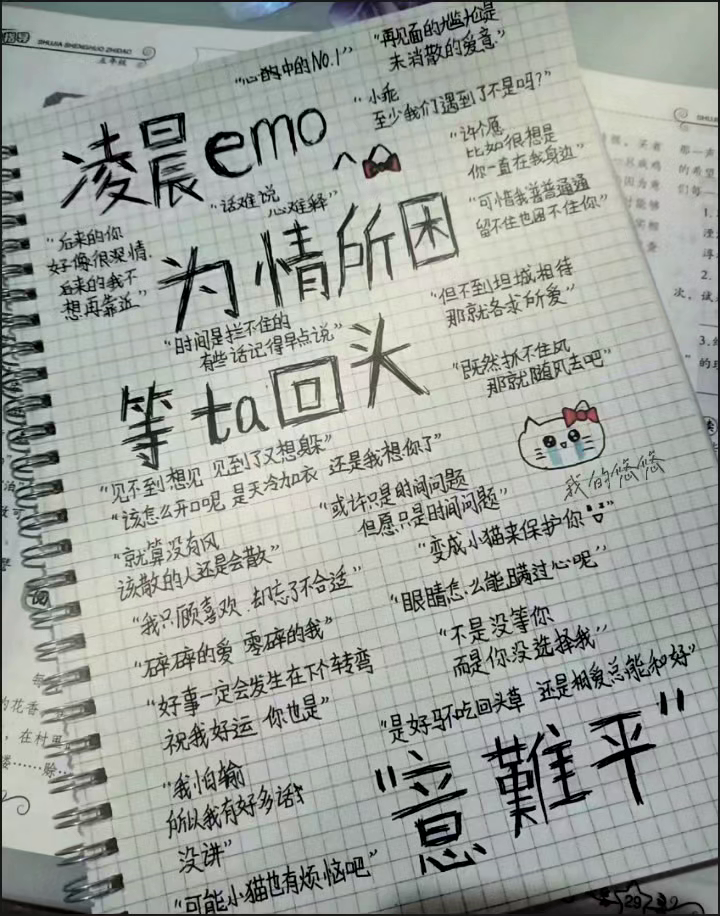 SHUJIA SHENGHUO ZHIDAO
五年级
"心的中的No.1"
"再见面的尴尬是
未消散的爱意"
"小乖
至少我们遇到了不是吗?"
凌晨emo
"许个愿
比如很想是
你一直在我身边"
"话难说
心难释"
"可惜我普普通通
留不住也困不住你"
"后来的你
好像很深情.
后来的我不
想再靠近"
为情所困
"但不到坦城相待
那就各求所爱"
"时间是拦不住的
有些话记得早点说"
"既然抓不住风
那就随风去吧"
等ta回头
我的悠悠
"见不到想见 见到了又想躲"
"该怎么开口呢 是天冷加衣 还是我想你了"
"或许只是时间问题
但愿只是时间问题"
"就算没有风
该散的人还是会散"
"变成小猫来保护你"
"我只顾喜欢.却忘了不合适"
"眼睛怎么能瞒过心呢"
"碎碎的爱 零碎的我"
"不是没等你
而是你没选择我"
"好事一定会发生在下个转弯
祝我好运 你也是"
"是好马不吃回头草 还是相爱总能和好"
"我怕输
所以我有好多话
没讲"
"意難平"
"可能小猫也有烦恼吧"
29
SHUJIA SHENGHUO
那一声
的希望
们每一
1.
2.
次，试
词
的花香
，在村里